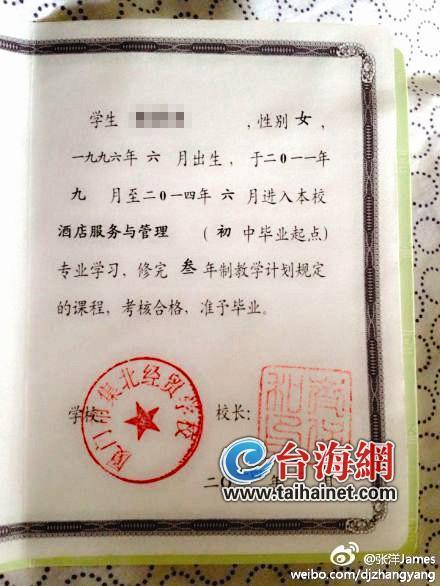 学生 ，性别 女 ，
一九九六年 六 月出生，于二0一一年
九 月至二0一四年 六 月进入本校
酒店服务与管理 （ 初 中毕业起点）
专业学习，修完 叁 年制教学计划规定
的课程，考核合格，准予毕业。
学校
厦门市集北经贸学校
校长：
台海網
www.taihainet.com
二0 年 月
@张洋James
weibo.com/djzhangyang